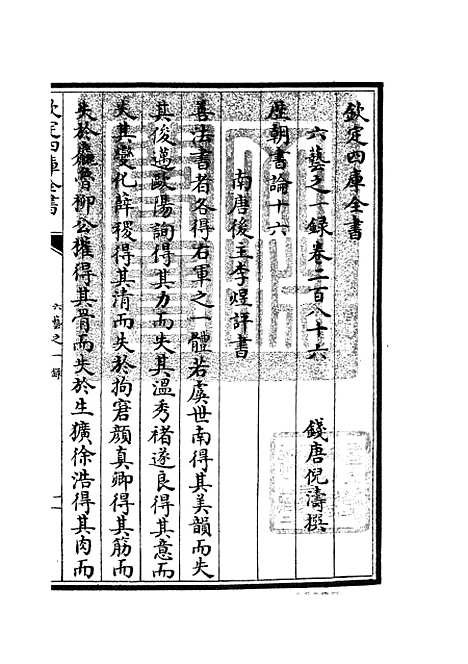 欽定四庫全書
六藝之一録卷二百八十六
錢唐倪濤撰
歷朝書論十六
南唐後主李煜評書
善法書者各得右軍之一體若虞世南得其美韻而失
其俊邁歐陽詢得其力而失其溫秀褚遂良得其意而
失其變化薛稷得其清而失於拘窘顔真卿得其筋而
失於麄魯柳公權得其骨而失於生獷徐浩得其肉而
欽定四庫全書
六藝之一録